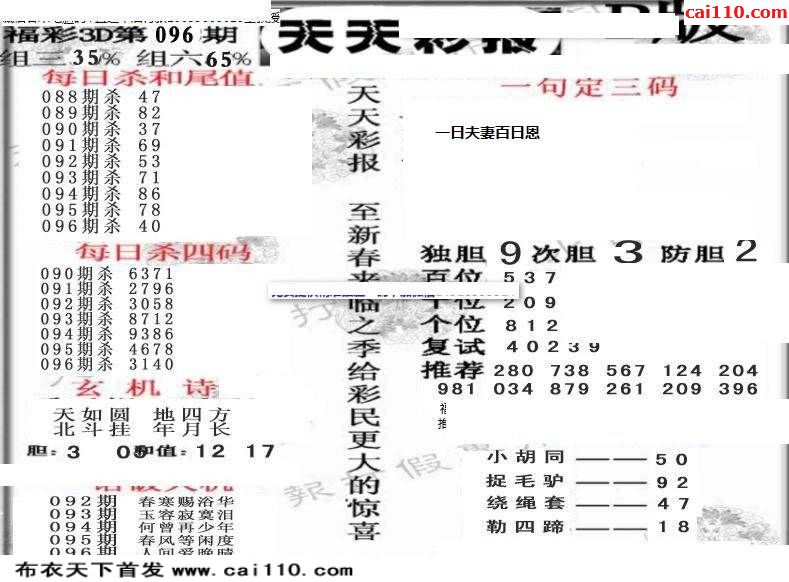 cai110.com
福彩3D第096期
【天天彩报】
组三35% 组六65%
每日杀和尾值
088期杀 47
089期杀 82
090期杀 37
091期杀 69
092期杀 53
093期杀 71
094期杀 86
095期杀 78
096期杀 40
每日杀四码
090期杀 6371
091期杀 2796
092期杀 3058
093期杀 8712
094期杀 9386
095期杀 4678
096期杀 3140
玄机诗
天如圆 地四方
北斗挂 年月长
胆:3 05和值:12 17
092期 春寒赐浴华
093期 玉容寂寞泪
094期 何曾再少年
095期 春风等闲度
096期 人间爱晚晴
天天彩报 至新春来临之季给彩民更大的惊喜
一句定三码
一日夫妻百日恩
独胆9次胆3防胆2
百位 537
十位 209
个位 812
复试 40239
推荐 280 738 567 124 204
981 034 879 261 209 396
小胡同———50
捉毛驴———92
绕绳套———47
勒四蹄———18
布衣天下首发 www.cai110.com